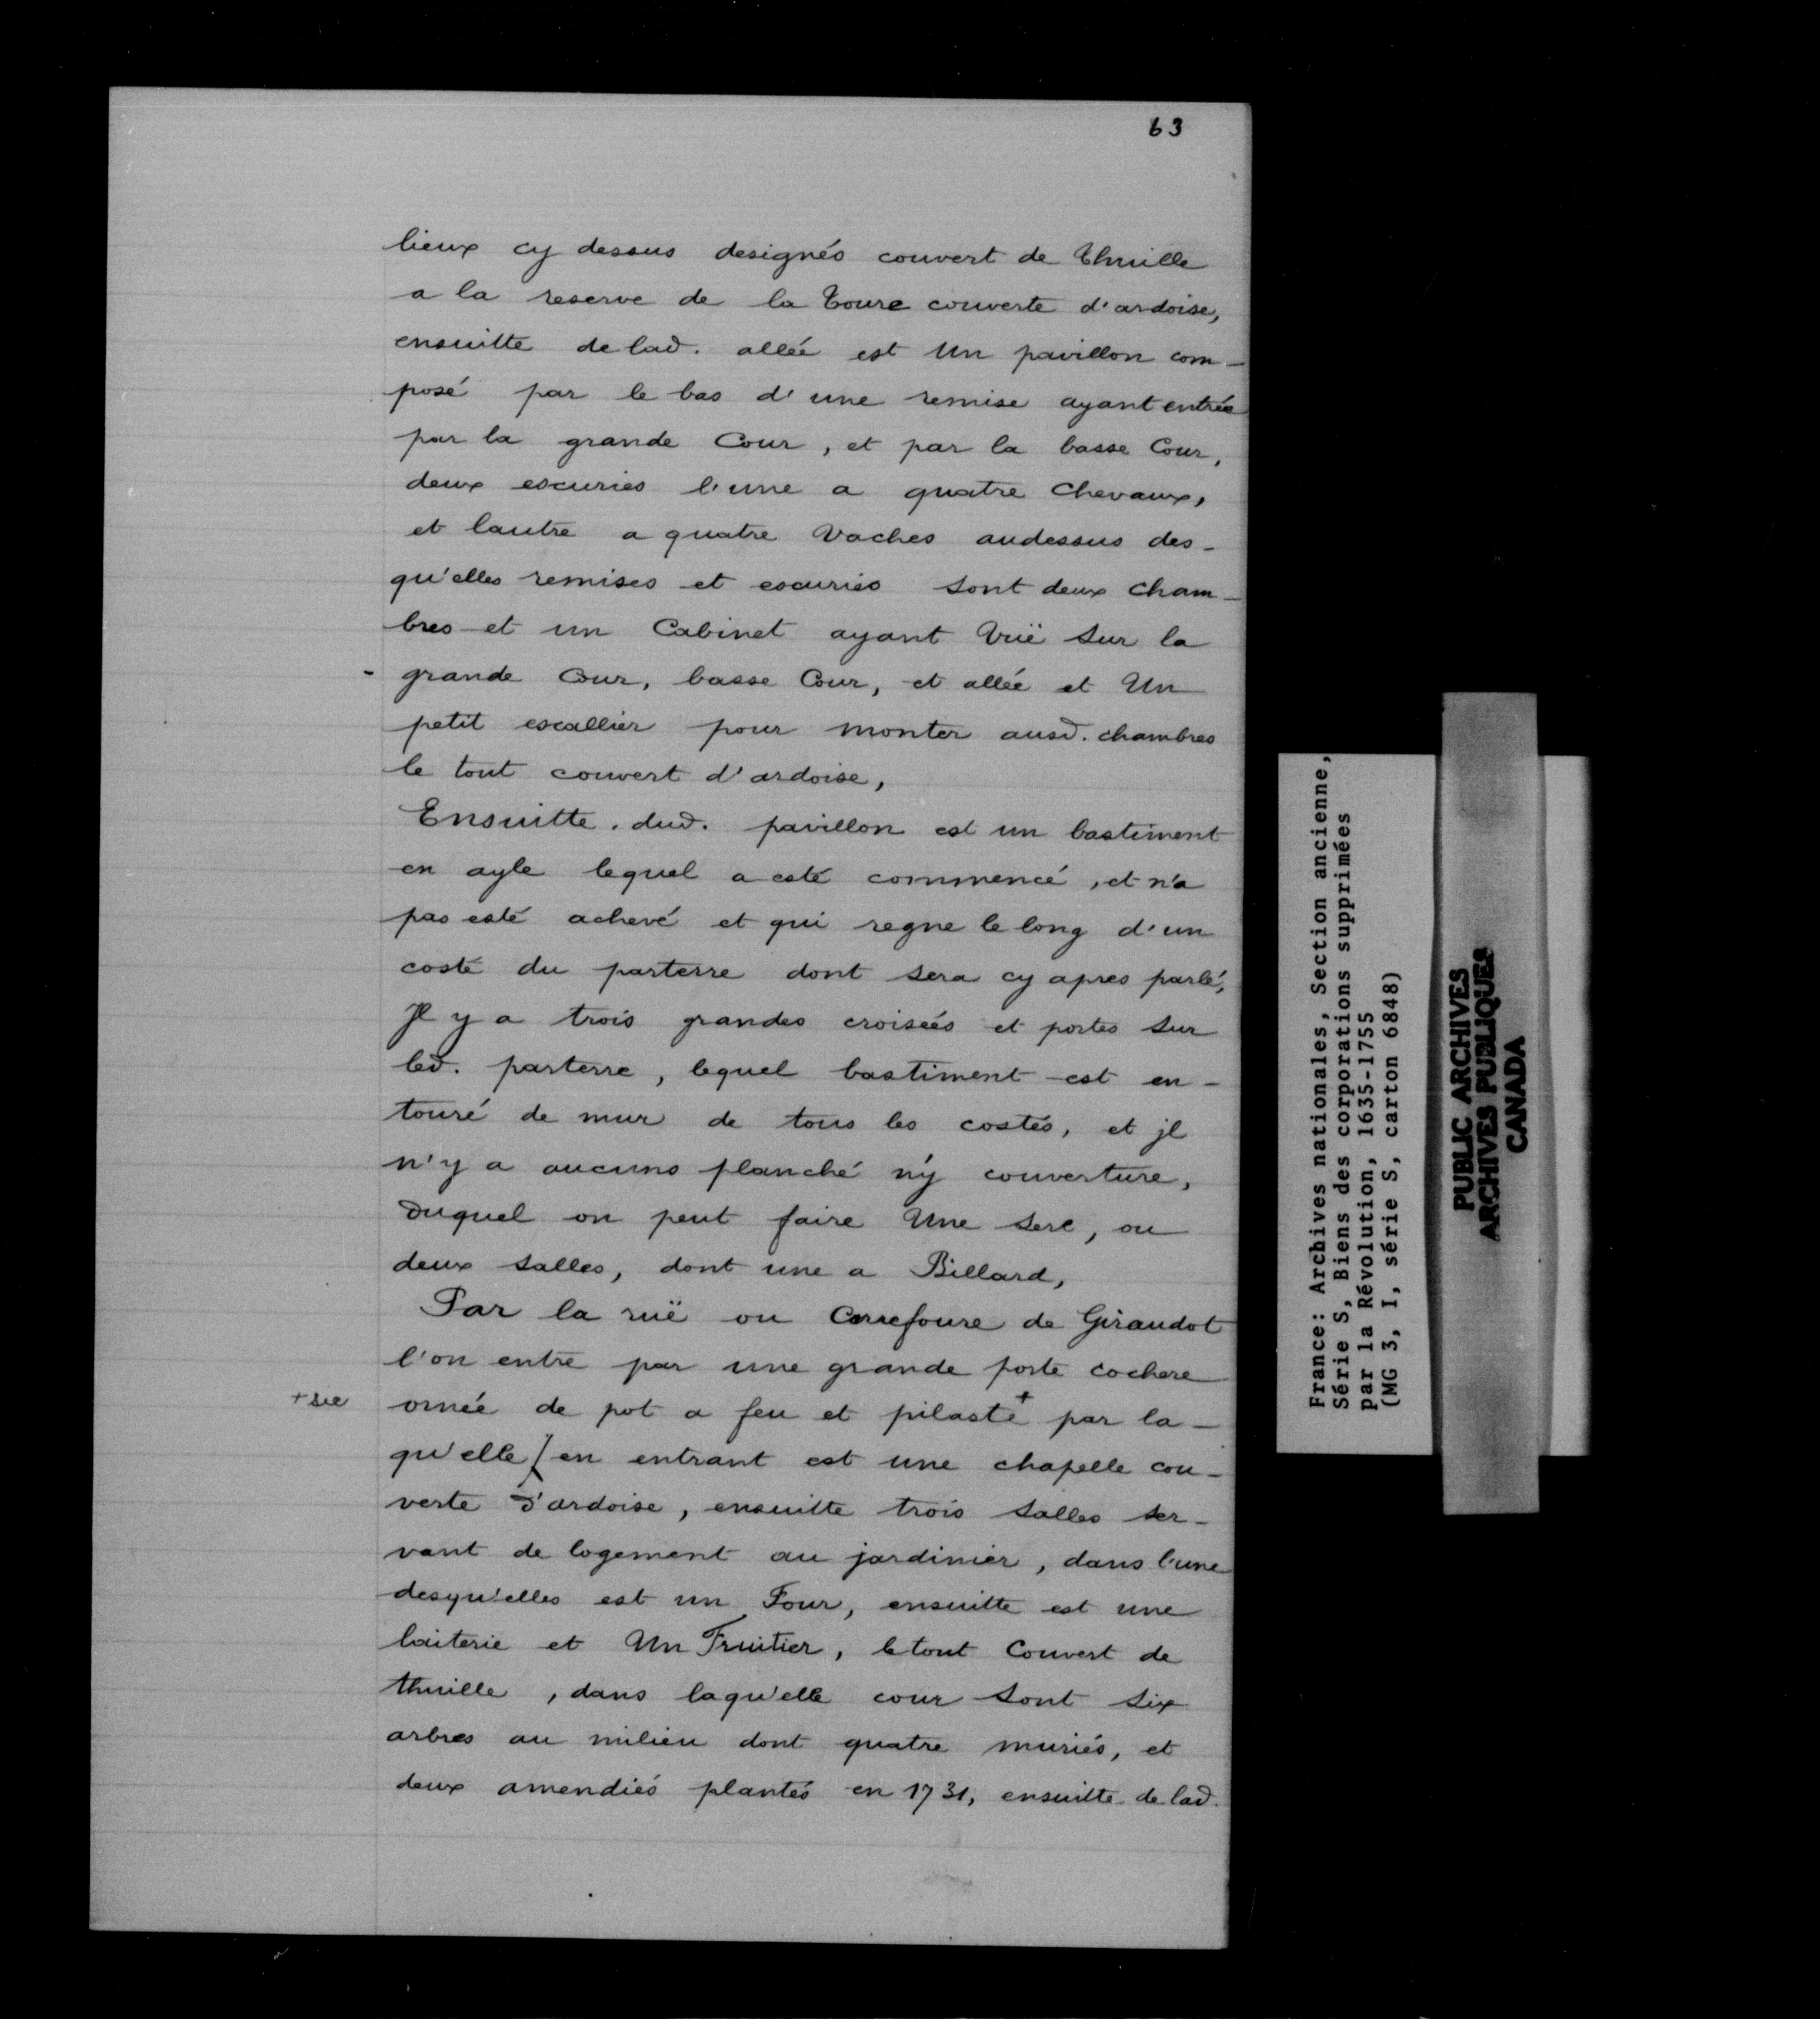 63
lieux cy dessus designés couvert de thuille
a la reserve de la toure couverte d'ardoise,
ensuitte de lad. allée est Un pavillon com-
posé par le bas d'une remise ayant entrée
par la grande Cour, et par la basse Cour,
deux escuries l'une a quatre chevaux,
et lautre a quatre Vaches audessus des-
qu'elles remises et escuries sont deux cham-
bres et un Cabinet ayant Vüë sur la
grande Cour, basse Cour, et allée et Un
petit escallier pour monter ausd. chambres
le tout couvert d'ardoise,
Ensuitte. dud. pavillon est un bastiment
en ayle lequel a esté commencé, et n'a
pas esté achevé et qui regne le long d'un
costé du parterre dont sera cy apres parlé,
Jl y a trois grandes croisées et portes sur
led. parterre, lequel bastiment est en-
touré de mur de tous les costés, et jl
n'y a aucuns planché n'y couverture,
duquel on peut faire Une sere, ou
deux salles, dont une a Billard,
Par la ruë ou Carrefoure de Giraudot
l'on entre par une grande porte cochere
+ sic
ornée de pot a feu et pilaste+ par la-
qu'elle / en entrant est une chapelle cou-
verte d'ardoise, ensuitte trois salles ser-
vant de logement au jardinier, dans l'une
desqu'elles est un Four, ensuitte est une
laiterie et Un Fruitier, le tout Couvert de
thuille, dans laqu'elle cour sont six
arbres au milieu dont quatre muriés, et
deux amendiés plantés en 1731, ensuitte de lad.
France: Archives nationales, Section ancienne,
Série S, Biens des corporations supprimées
par la Révolution, 1635-1755
(MG 3, I, série S, carton 6848)
PUBLIC ARCHIVES
ARCHIVES PUBLIQUES
CANADA